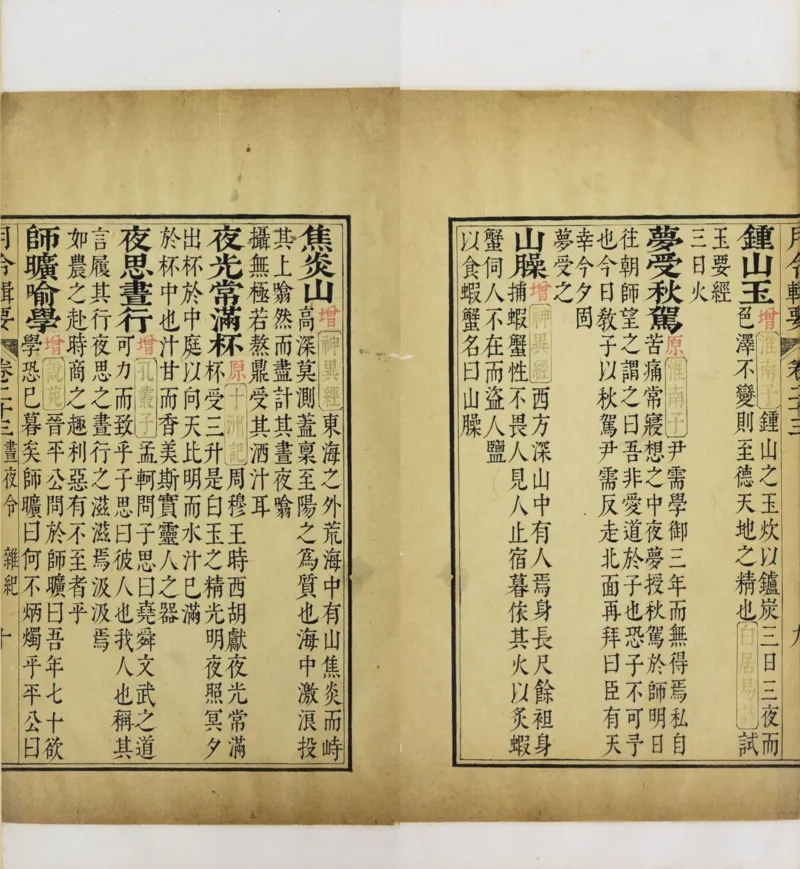 月令輯要 卷二十三 九
鍾山玉增淮南子鍾山之玉炊以鑪炭三日三夜而
色澤不變則至德天地之精也白居易詩試
玉要經
三日火
夢受秋駕原淮南子尹需學御三年而無得焉私自
苦痛常寢想之中夜夢授秋駕於師明日
往朝師望之謂之曰吾非愛道於子也恐子不可予
也今日教子以秋駕尹需反走北面再拜曰臣有天
幸今夕固
夢受之
山臊增神異經西方深山中有人焉身長尺餘袒身
捕蝦蟹性不畏人見人止宿暮依其火以炙蝦
蟹伺人不在而盜人鹽
以食蝦蟹名曰山臊
焦炎山增神異經東海之外荒海中有山焦炎而峙
高深莫測蓋稟至陽之爲質也海中激浪投
其上噏然而盡計其晝夜噏
攝無極若熬鼎受其洒汁耳
夜光常滿杯原十洲記周穆王時西胡獻夜光常滿
杯受三升是白玉之精光明夜照冥夕
出杯於中庭以向天比明而水汁已滿
於杯中也汁甘而香美斯實靈人之器
夜思晝行增孔叢子孟軻問子思曰堯舜文武之道
可力而致乎子思曰彼人也我人也稱其
言履其行夜思之晝行之滋滋焉汲汲焉
如農之赴時商之趣利惡有不至者乎
師曠喻學增說苑晉平公問於師曠曰吾年七十欲
學恐已暮矣師曠曰何不炳燭乎平公曰
月令輯要 卷二十三 晝夜令 雜紀 十